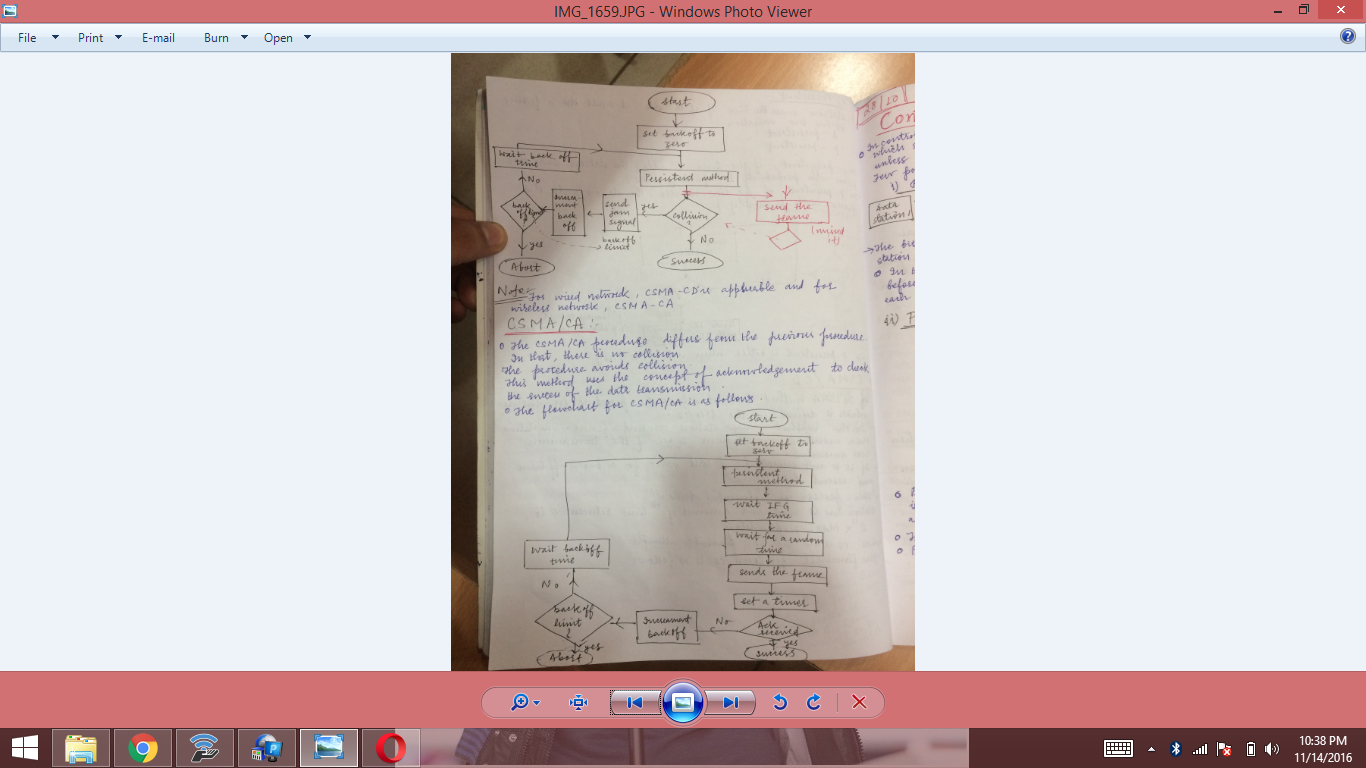 IMG_1659.JPG - Windows Photo Viewer
File Print E-mail Burn Open
start
set backoff to
zero
wait back off
time
Persistend method
No
back
off limit
?
back
off
send
jam
signal
yes
collision
?
send the
frame
(mind
it)
backoff
limit
No
yes
Abort
Success
Note:-
For wired network, CSMA-CD is applicable and for
wireless network, CSMA-CA
CSMA/CA :-
The CSMA/CA procedure differs from the previous procedure
In that, there is no collision
The procedure avoids collision
This method uses the concept of acknowledgement to check
the of the data transmission.
The flowchart for CSMA/CA is as follows.
start
set backoff to
zero
persistent
method
wait IFG
time
wait for a random
time
sends the frame
set a timer
Ack
received
yes
success
No
Increament
backoff
backoff
limit
?
No
wait backoff
time
yes
Abort
28/10
Con
In contro
which s
unless
i)
data
station
station
In
before
ii)
10:38 PM
11/14/2016